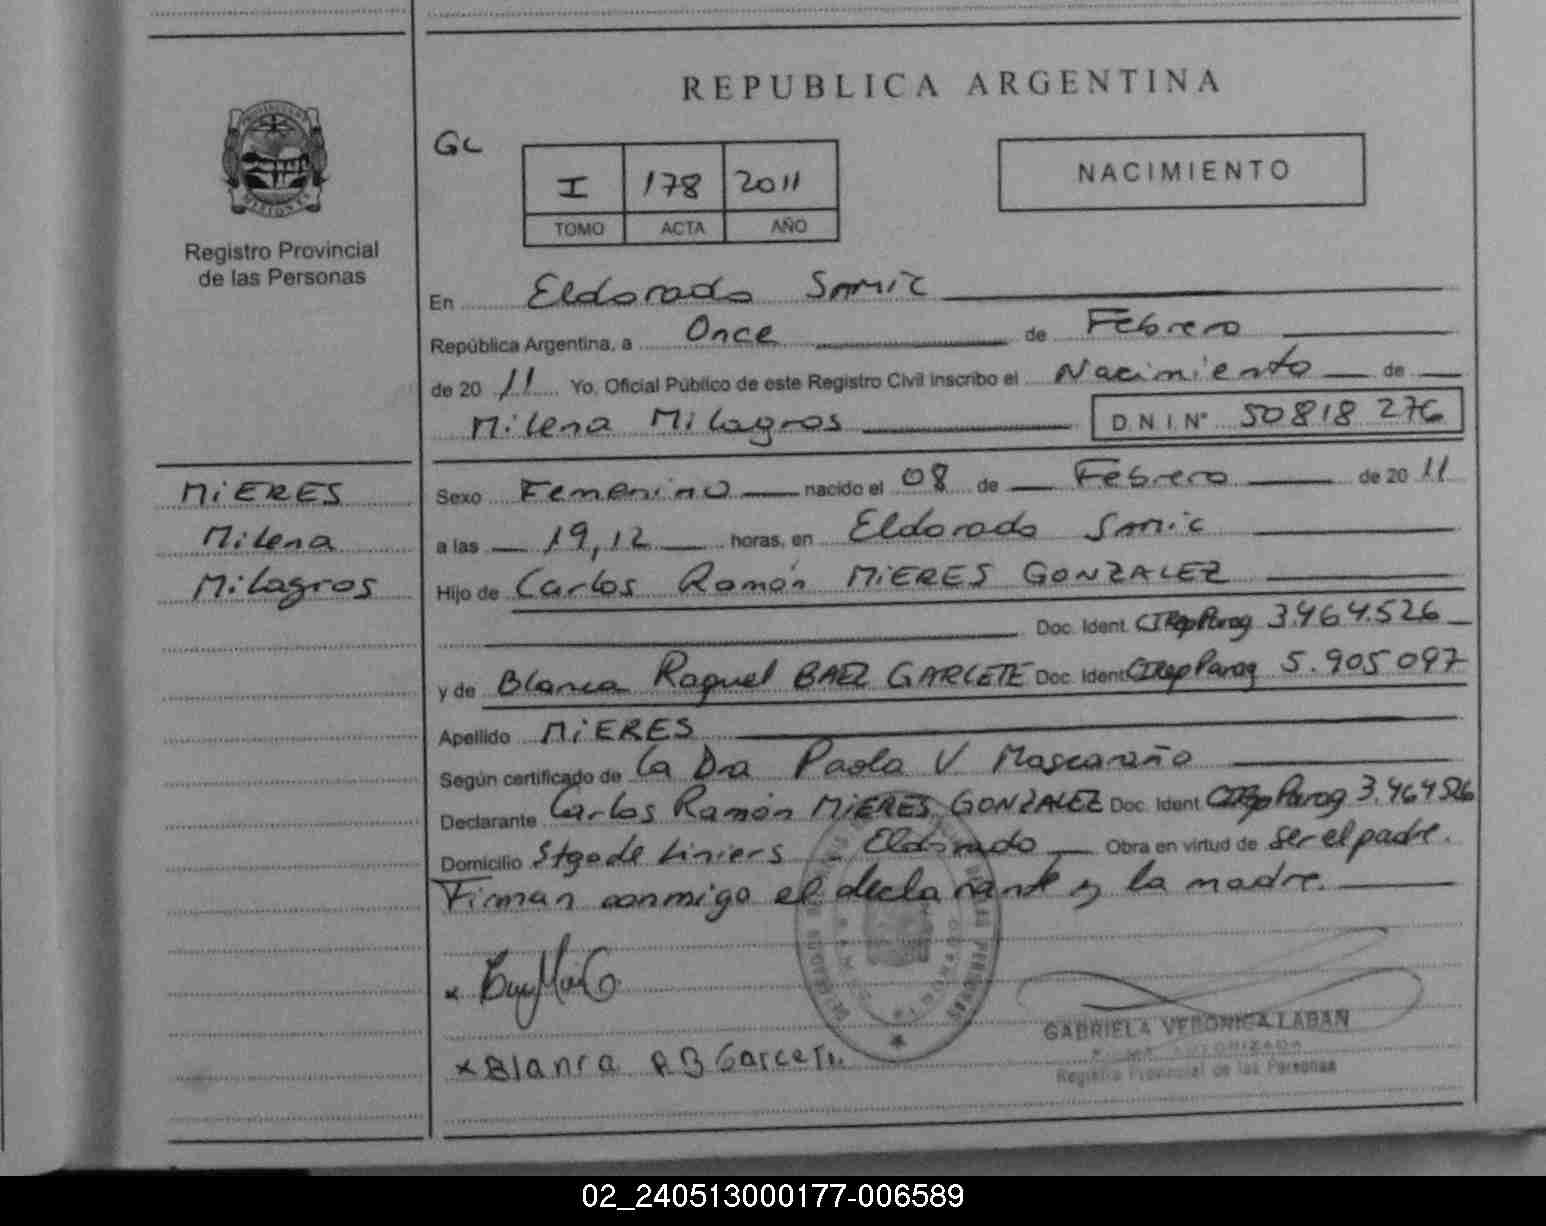 REPUBLICA ARGENTINA
GC
I 178 2011
TOMO ACTA AÑO
NACIMIENTO
PROVINCIA DE
MISIONES
Registro Provincial
de las Personas
En Eldorado Samic
República Argentina, a Once de Febrero
de 20 11 Yo, Oficial Público de este Registro Civil inscribo el Nacimiento de
Milena Milagros D.N.I. N° 50818 276
MiERES
Milena
Milagros
Sexo Femenino nacido el 08 de Febrero de 20 11
a las 19,12 horas, en Eldorado Samic
Hijo de Carlos Ramón MiERES GONZALEZ
Doc. Ident. CIRepParag 3.464.526
y de Blanca Raquel BAEZ GARCETE Doc. Ident CIRepParag 5.905 097
Apellido MiERES
Según certificado de La Dra Paola V Mascaraño
Declarante Carlos Ramón MiERES GONZALEZ Doc. Ident CIRep Parag 3.464526
Domicilio Stgo de Liniers - Eldorado Obra en virtud de ser el padre.
Firman conmigo el declarante y la madre.
x
x Blanca R B Garcete
GABRIELA VERONICA LABAN
FIRMA AUTORIZADA
Registro Provincial de las Personas
02_240513000177-006589